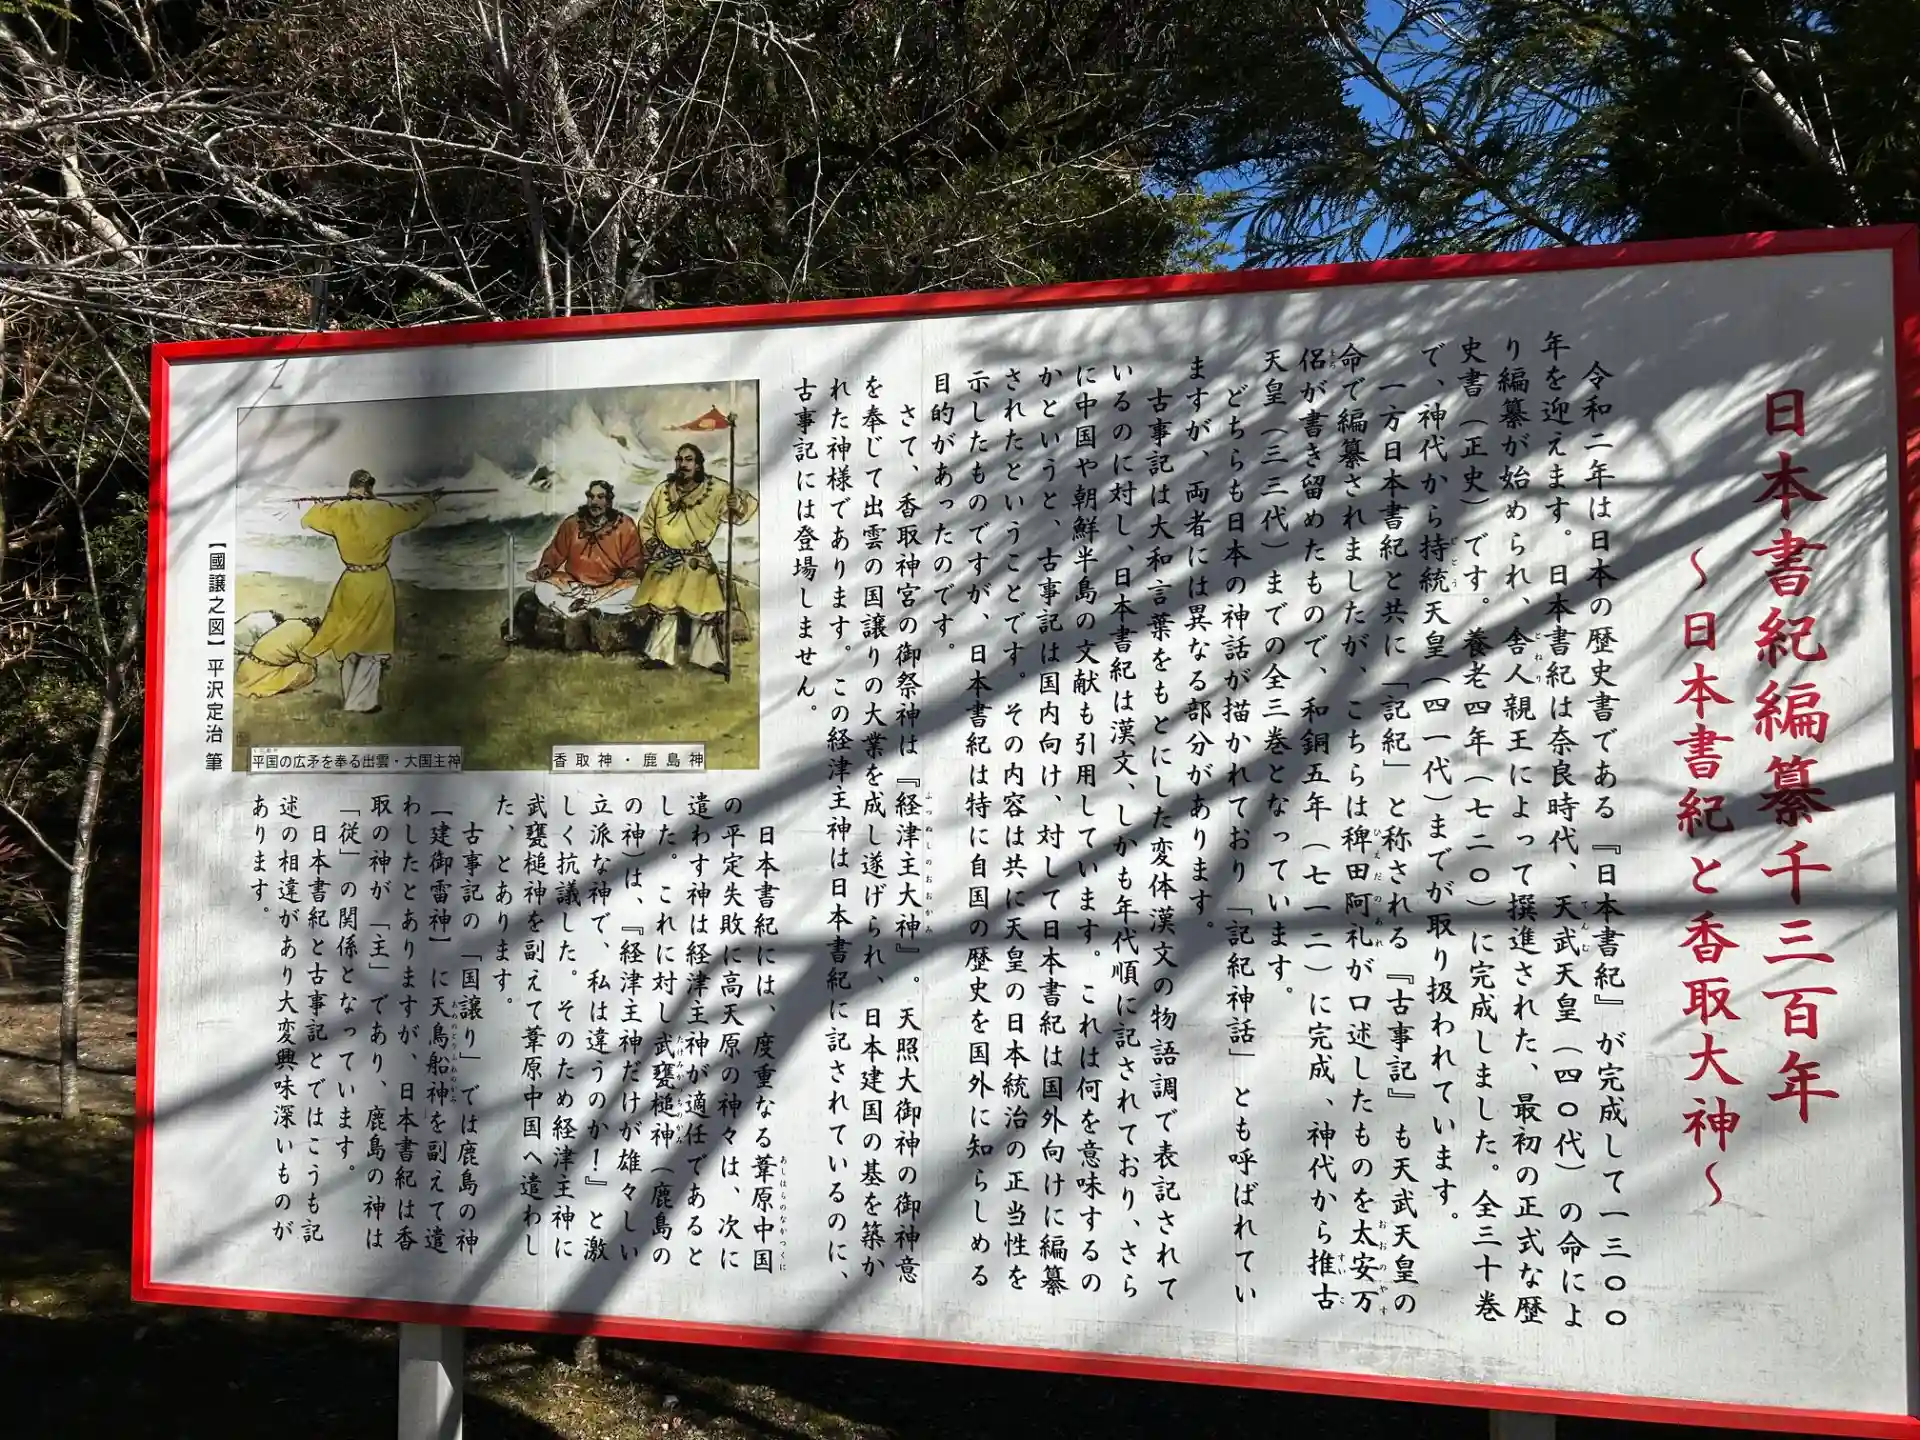 日本書紀編纂千三百年
～日本書紀と香取大神～
令和二年は日本の歴史書である『日本書紀』が完成して一三〇〇
年を迎えます。日本書紀は奈良時代、天武天皇（四〇代）の命によ
り編纂が始められ、舎人親王によって撰進された、最初の正式な歴
史書（正史）です。養老四年（七二〇）に完成しました。全三十巻
で、神代から持統天皇（四一代）までが取り扱われています。
一方日本書紀と共に「記紀」と称される『古事記』も天武天皇の
命で編纂されましたが、こちらは稗田阿礼が口述したものを太安万
侶が書き留めたもので、和銅五年（七一二）に完成、神代から推古
天皇（三三代）までの全三巻となっています。
どちらも日本の神話が描かれており「記紀神話」とも呼ばれてい
ますが、両者には異なる部分があります。
古事記は大和言葉をもとにした変体漢文の物語調で表記されて
いるのに対し、日本書紀は漢文、しかも年代順に記されており、さら
に中国や朝鮮半島の文献も引用しています。これは何を意味するの
かというと、古事記は国内向け、対して日本書紀は国外向けに編纂
されたということです。その内容は共に天皇の日本統治の正当性を
示したものですが、日本書紀は特に自国の歴史を国外に知らしめる
目的があったのです。
さて、香取神宮の御祭神は『経津主大神』。天照大御神の御神意
を奉じて出雲の国譲りの大業を成し遂げられ、日本建国の基を築か
れた神様であります。この経津主神は日本書紀に記されているのに、
古事記には登場しません。
日本書紀には、度重なる葦原中国
の平定失敗に高天原の神々は、次に
遣わす神は経津主神が適任であると
した。これに対し武甕槌神（鹿島の
の神）は、『経津主神だけが雄々しい
立派な神で、私は違うのか！』と激
しく抗議した。そのため経津主神に
武甕槌神を副えて葦原中国へ遣わし
た、とあります。
古事記の「国譲り」では鹿島の神
【建御雷神】に天鳥船神を副えて遣
わしたとありますが、日本書紀は香
取の神が「主」であり、鹿島の神は
「従」の関係となっています。
日本書紀と古事記とではこうも記
述の相違があり大変興味深いものが
あります。
香取神・鹿島神
平国の広矛を奉る出雲・大国主神
【國譲之図】平沢定治 筆